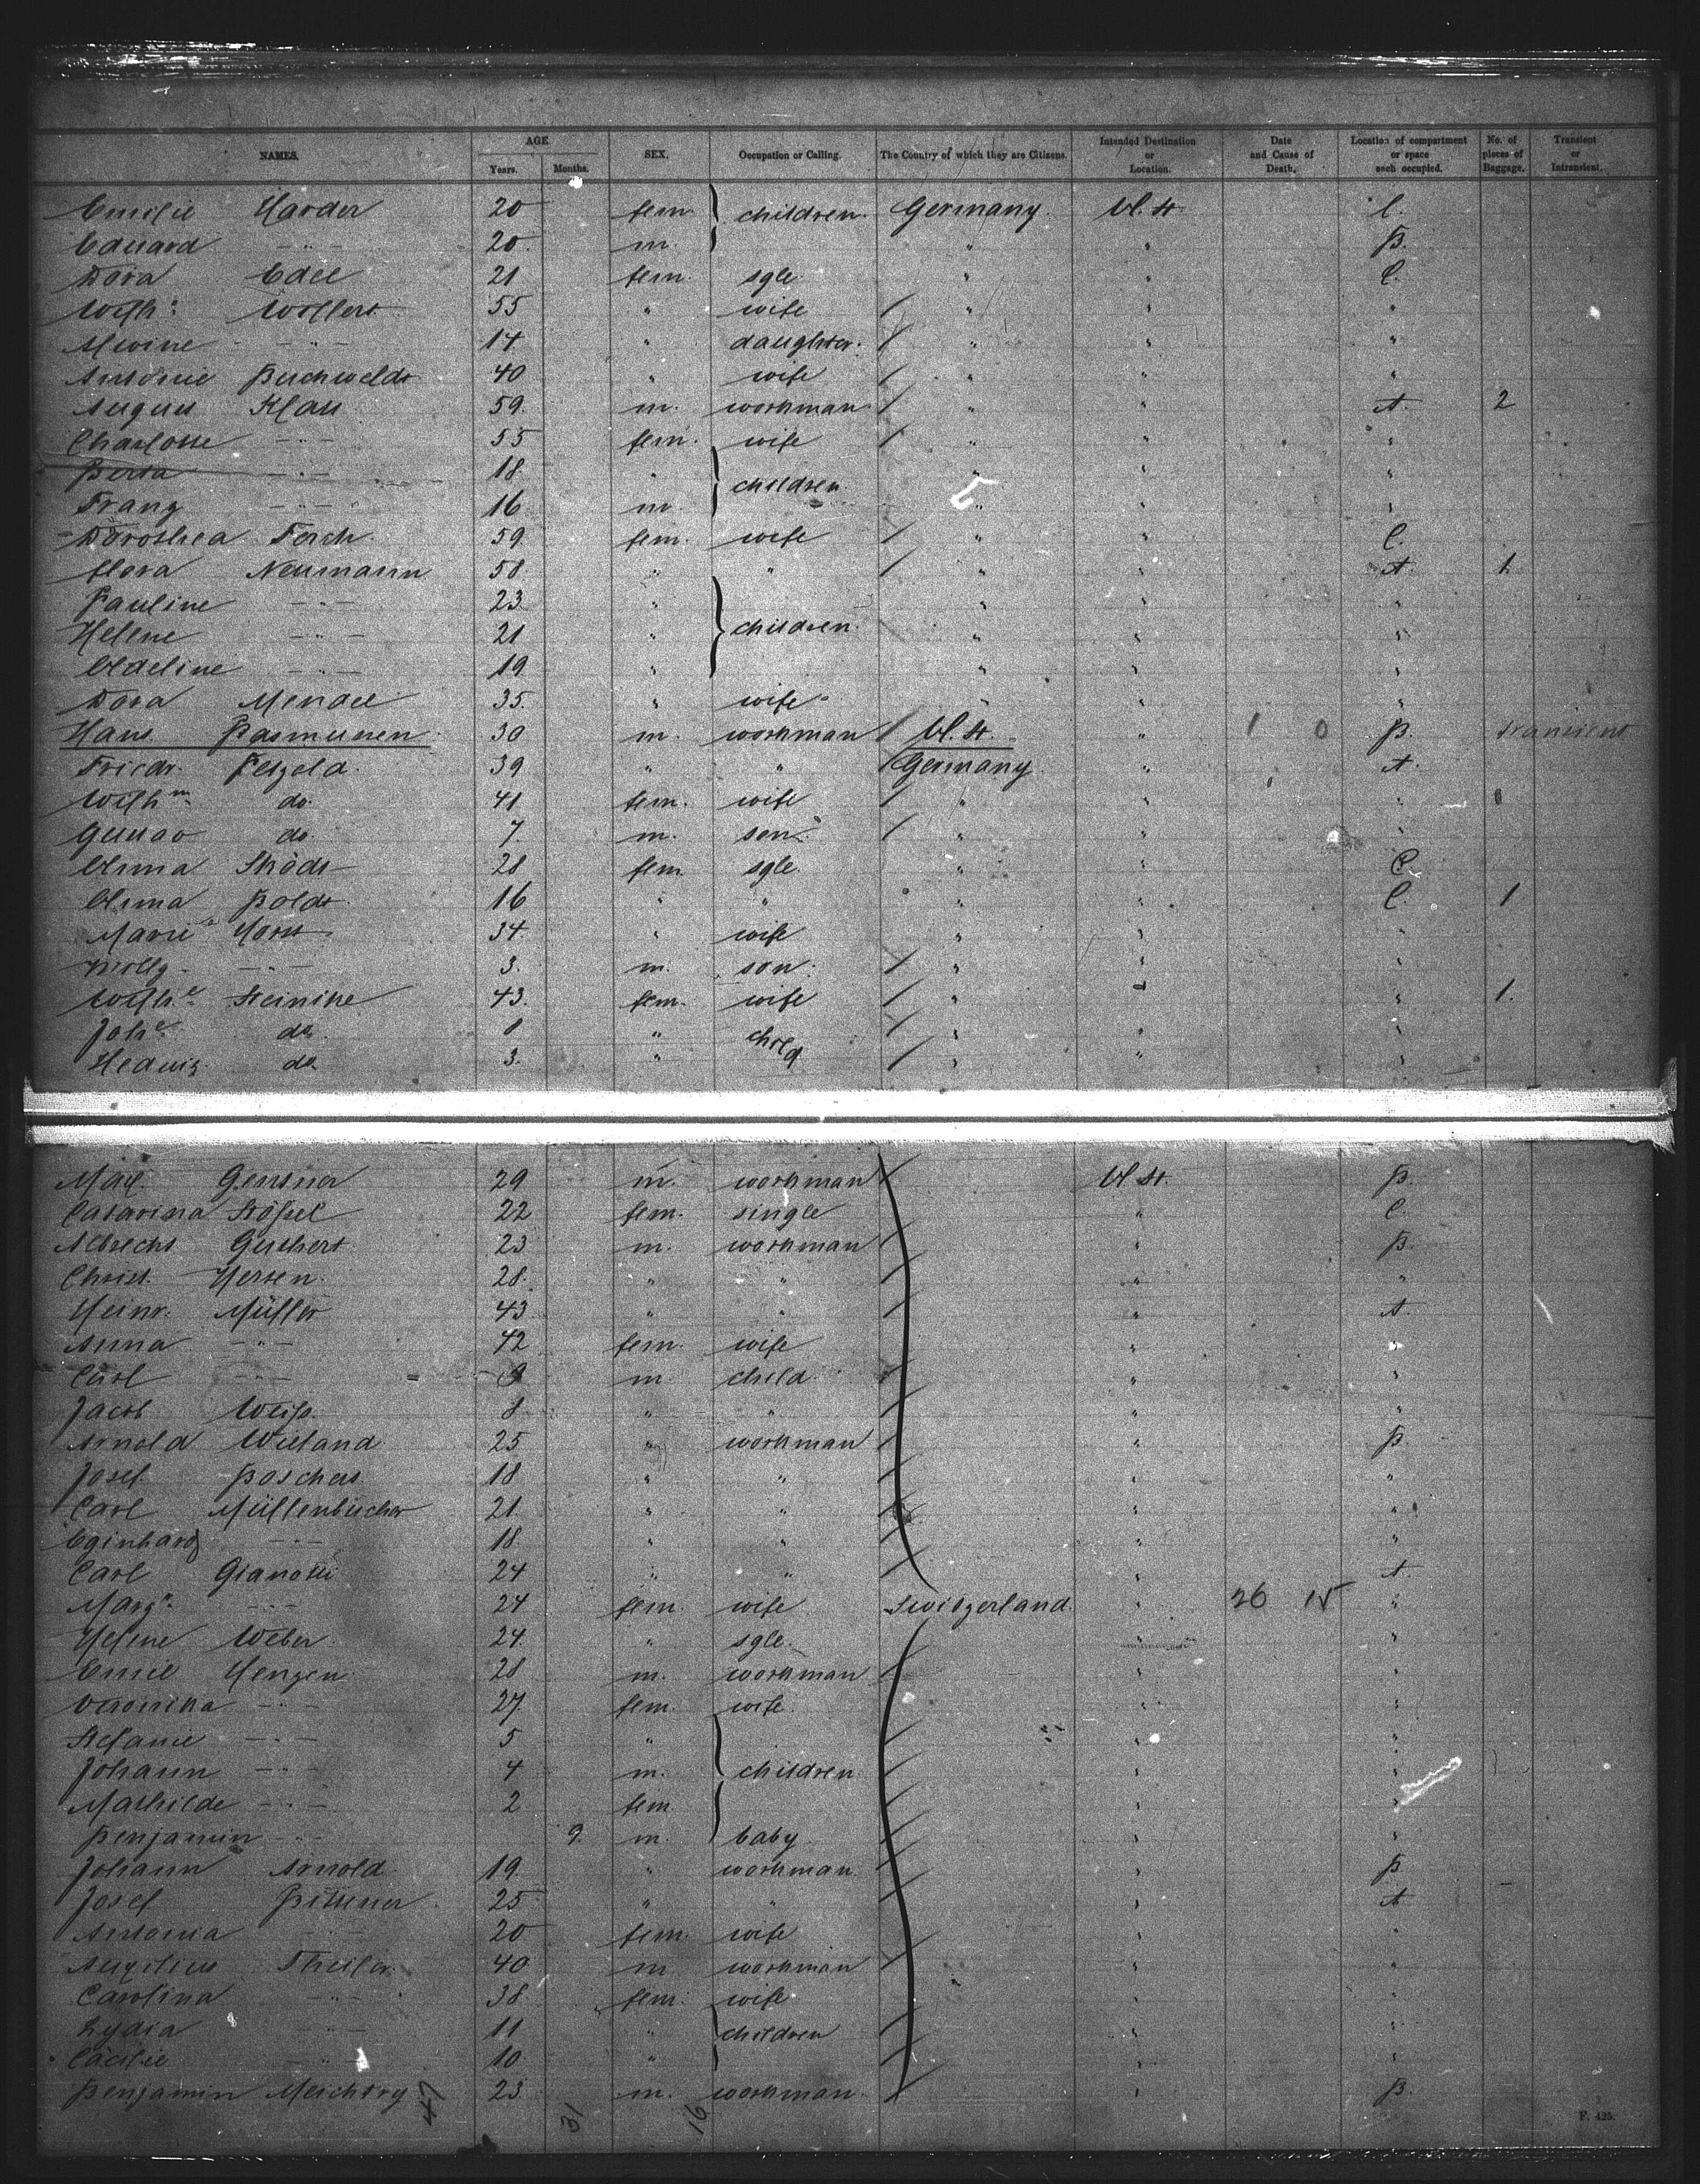 NAMES. AGE Years. Months. SEX. Occupation or Calling. The Country of which they are Citizens. Intended Destination or Location. Date and Cause of Death. Location of compartment or space each occupied. No. of pieces of Baggage. Transient or Intransient.
Emilie Harder 20 fem. children. Germany. U. St. C.
Eduard -"- 20 m. " " B.
Dora Edel 21 fem. sgle " " C.
Wilh. Wollert 55 " wife " " "
Alwine -"- 14 " daughter. " " "
Antonie Buchwaldt 40 " wife " " "
August Klatt 59. m. workman " " A. 2
Charlotte -"- 55 fem. wife " "
Berta -"- 18 " children " " "
Franz -"- 16 m. " " "
Dorothea Ferch 59 fem. wife " " C.
Flora Neumann 58 " " " " A. 1.
Pauline -"- 23 " children. " " "
Helene -"- 21 " " " "
Adeline -"- 19 " " " "
Dora Mendel 35. " wife " " "
Hans Rasmussen 30 m. workman U. St. " 1 0 B. transient
Friedr. Petzold 39 " " Germany " A.
Wilhm. do. 41 fem. wife " " "
Gustav do. 7. m. son " " "
Anna 28 fem. sgle. " " C.
Anna Boldt 16 " " " " C. 1
Marie Horst 34. " wife " " "
Willy -"- 3. m. son. " " "
Wilhe. Steinike 43. fem. wife " " 1.
Johe. do. 8 " child " "
Hedwig. do. 3. " " " "
Max Gentner 29 m. workman U. St. B.
Catarina Stössel 22 fem. single " C.
Albrecht 23 m. workman " B.
Christ. Hersen. 28. " " " "
Heinr. Müller 43 " " " A.
Anna -"- 42 fem. wife " "
Carl -"- m. child " "
Jacob Weiss. 8 " " " "
Arnold Wieland 25 " workman " B.
Josef 18 " " " "
Carl Müllenbücher 21. " " " "
Eginhard -"- 18. " " " "
Carl Gianotti 24 " " " A.
Marg. -"- 24 fem. wife Switzerland. " 26 15 "
Helene Weber 24. " sgle. " "
Emil Henzen 28 m. workman " "
Veronika -"- 27. fem. wife. " "
Stefanie -"- 5 " " "
Johann -"- 4 m. children " "
Mathilde -"- 2 fem. " "
Benjamin -"- 9. m. baby " "
Johann Arnold 19. " workman " B.
Josef Bittner 25 " " " A.
Antonia -"- 20 fem. wife "
Theiler 40 m workman " "
Carolina -"- 38 fem. wife " "
Lydia -"- 11 " children " "
Cäcilie -"- 10. " " "
Benjamin Meichtry 23 m. workman. " B.
47 31 16
F. 425.